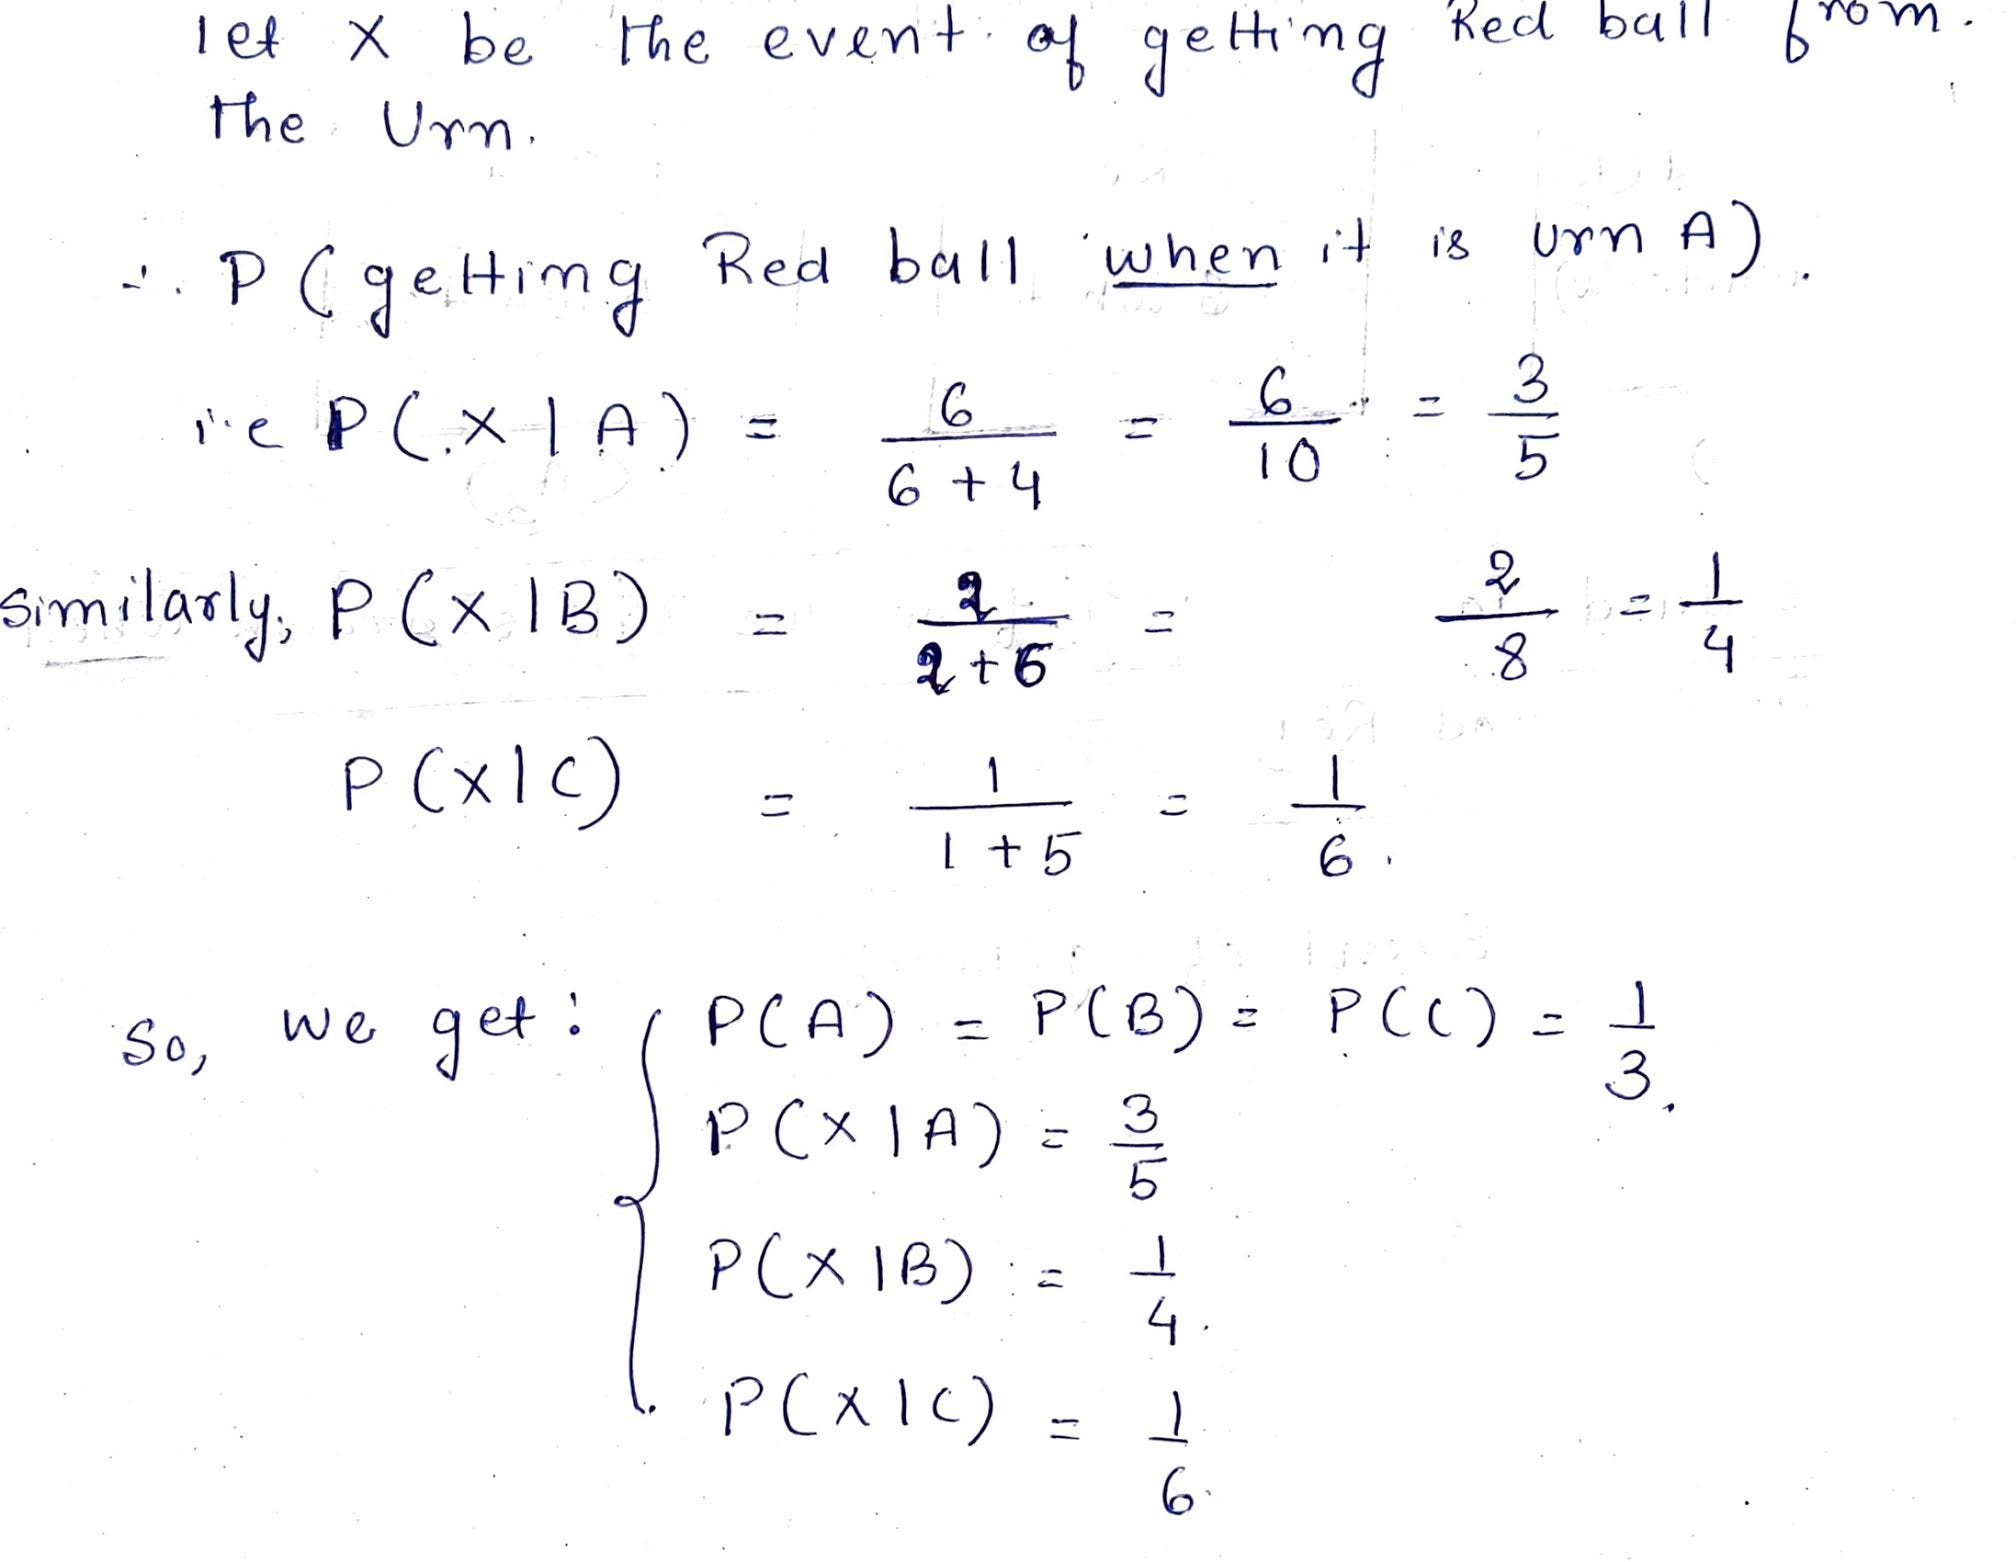 let X be the event of getting Red ball from.
the Urn.
∴ P (getting Red ball when it is urn A).
i.e P(X|A) = 6/(6+4) = 6/10 = 3/5
similarly, P(X|B) = 2/(2+6) = 2/8 = 1/4
P(X|C) = 1/(1+5) = 1/6.
So, we get: { P(A) = P(B) = P(C) = 1/3.
P(X|A) = 3/5
P(X|B) = 1/4.
P(X|C) = 1/6.